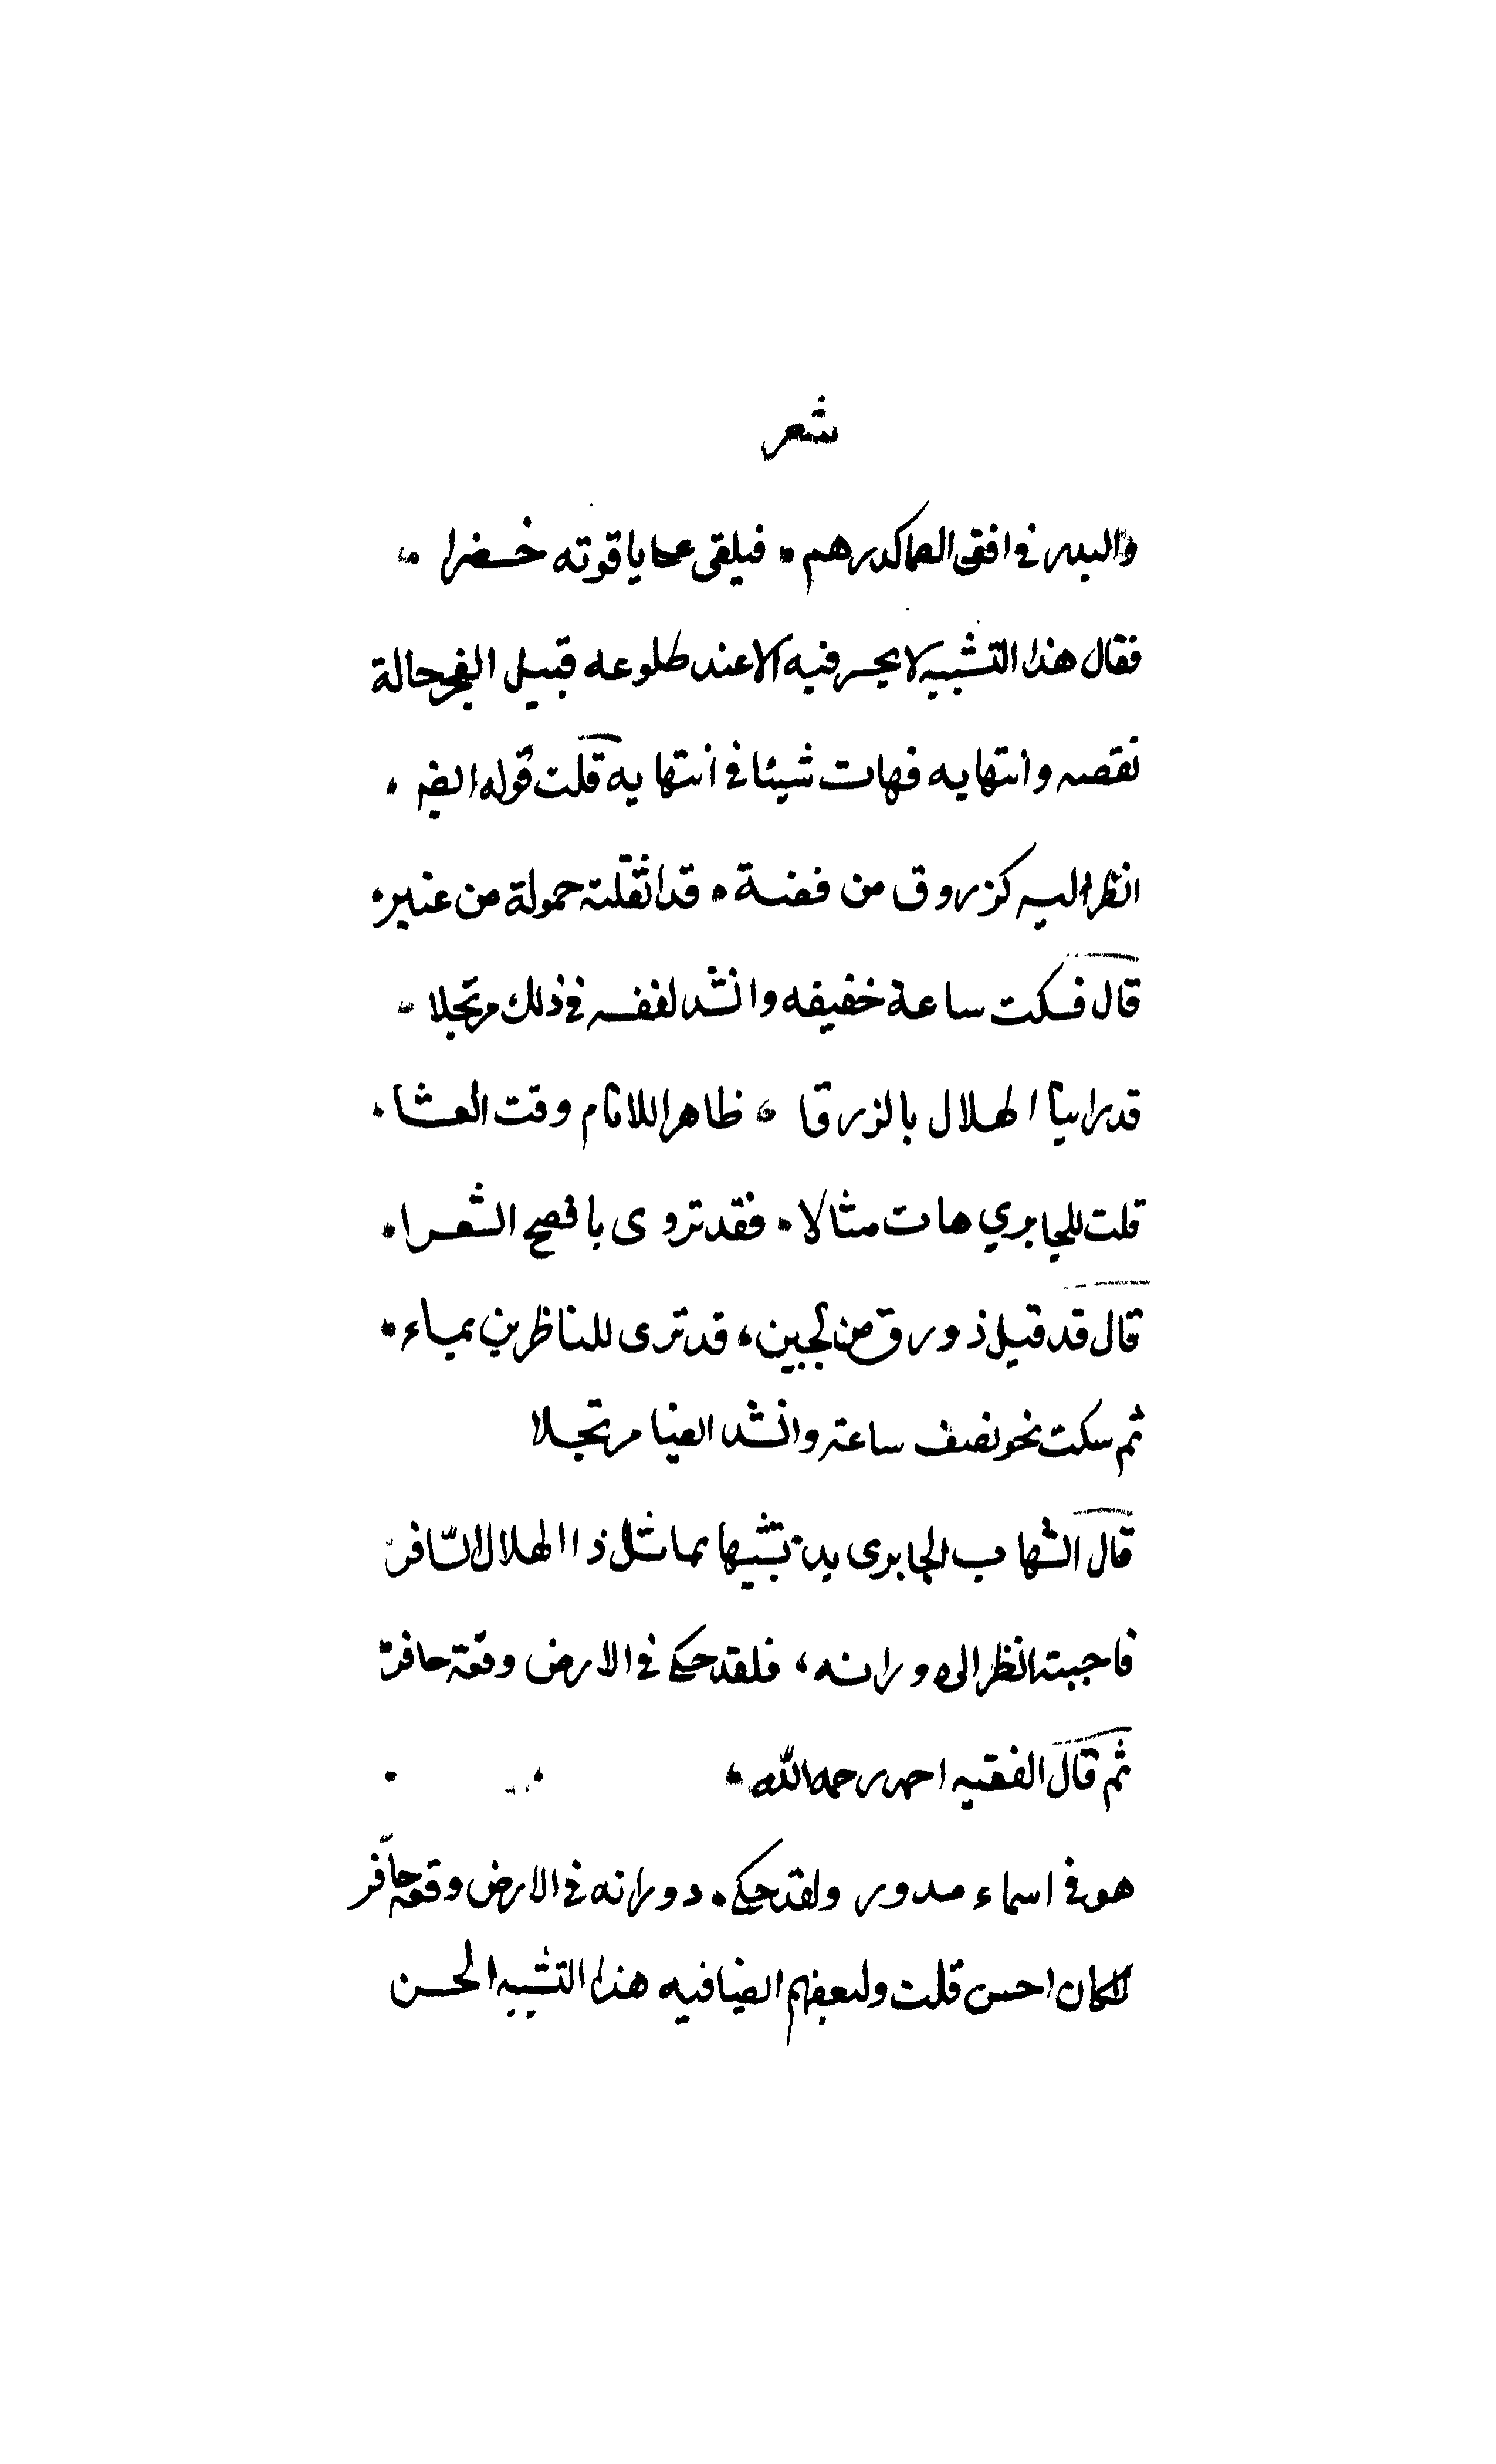 شعر
والبدر في افق السما كدرهم • فيلقى على ياقوته خضرا
فقال هذا التشبيه لا يحسن فيه الا عند طلوعه قبيل الفجر حالة
نقصه وانتهايه فهات شيئا في انتهايه قلت قوله ايضا
انظر اليه كزروق من فضة • قد اثقلته حمولة من عنبر
قال فسكت ساعة خفيفه وانشد لنفسه في ذلك مرتجلا
قد راينا الهلال بالزرقا ، ظاهرا للانام وقت العشا
قلت للجابري هات مثالا • فقد تروى با فصح الشعرا
قال قد قيل ذورق من لجين ، قد ترى للناظرين بماء
ثم سكت نحو نصف ساعة وانشد ايضا مرتجلا
قال الشهاب الجابرى تشبيها بما ذا الهلال السافر
فاجبته انظر الى ورانه ، فلقد حكى في الارض وقعة حافر
ثم قال الفقيه احمد رحمه الله
هو في اسماء مدور ولقد حكى • دورانه في الارض وقعة حافر
لكان احسن قلت ولبعضهم ايضا فيه هذا التشبيه الحسن